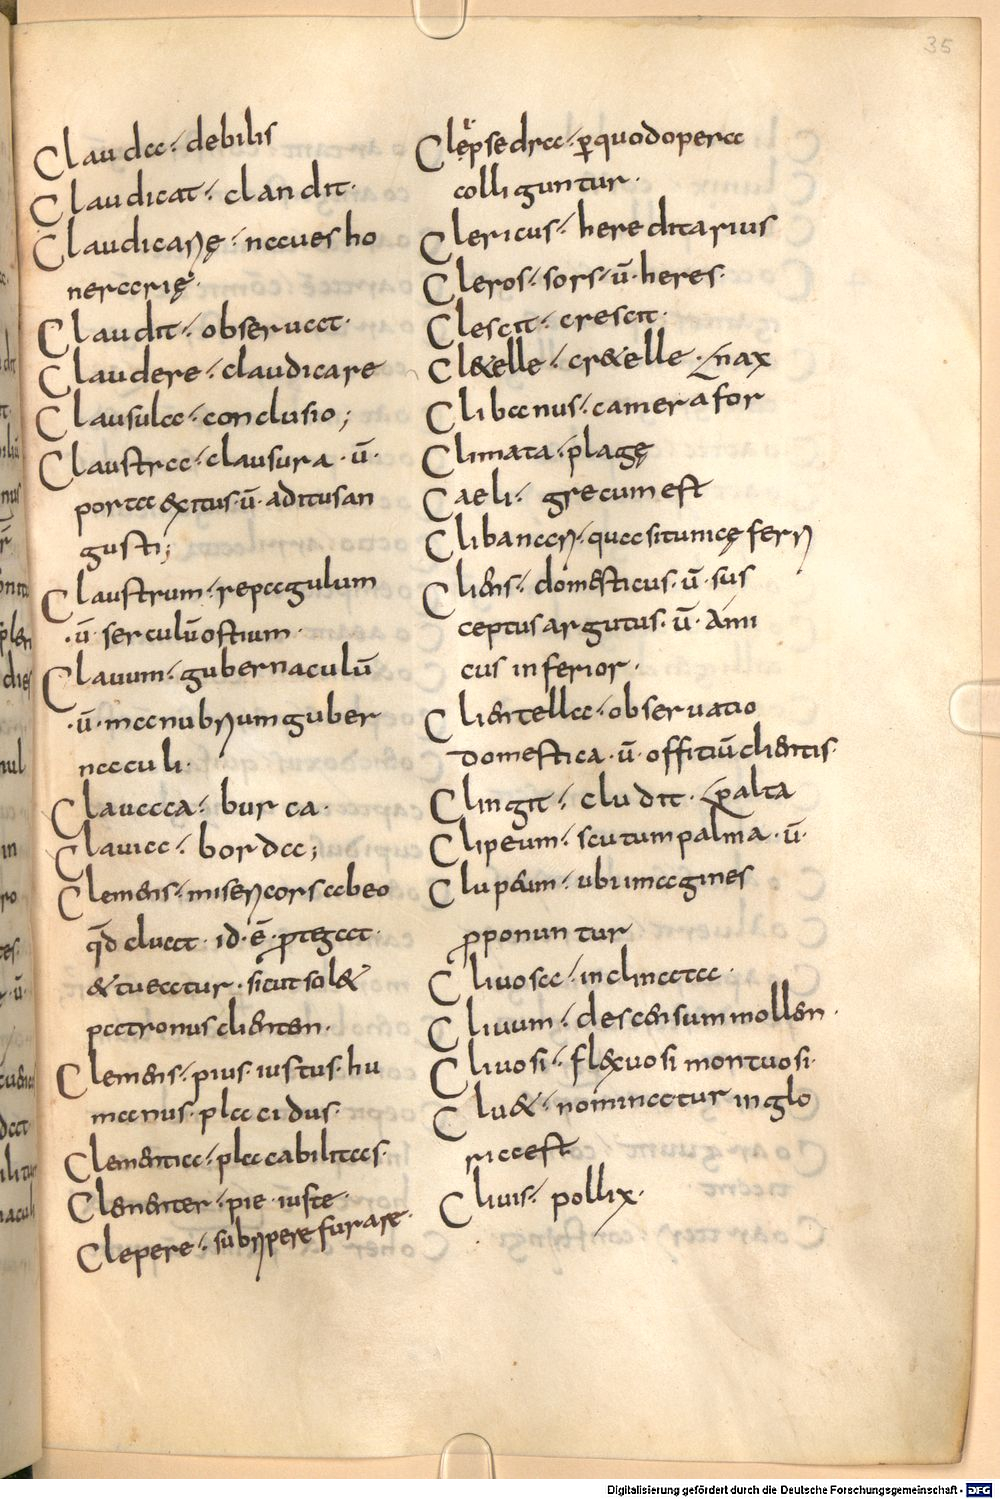 35
Clauda·/ debilis
Claudicat·/ clandit·
Claudicarię·/ naues ho
nerarię·
Claudit·/ obseruat·
Claudere·/ claudicare
Clausula·/ conclusio;
Claustra·/ clausura · ū·
porta & exitus· ū· aditus an
gusti;
Claustrum·/ repagulum
· ū· serculū ostium·
Clauum·/ gubernaculū
· ū· manubrium guber
naculi·
Clauaca·/ burca·
Clauia·/ borda;
Clemens·/ misericors abeo
qđ cluat· id· ē· ꝓtegat·
& tueatur· sicut sol &
patronus clienten·
Clemens·/ pius· iustus· hu
manus· placidus·
Clementia·/ placabilitas·
Clenenter·/ pie· iuste·
Clepere·/ subripere furare·
Clępsedra·/ ꝑ quod opera
colliguntur·
Clericus·/ hereditarius
Cleros·/ sors·/ ū· heres·
Clescit·/ crescit·
Cl&elle·/ cr&elle· nax
Clibanus·/ camera for
Climata·/ plagę
Caeli·/ grecum est
Clibanari·/ qua situnicę ferri
Cliens·/ domesticus· ū· sus
ceptus argutus· ū· Ami
cus inferior·
Clientella·/ obseruatio
domestica· ū· offitiū clientis·
Clingit·/ cludit· palta
Clipeum·/ scutum palma· ū·
Clupeum·/ ubi imagines
ꝓponuntur
Cliuosa·/ inclinata·
Cliuum·/ descensum mollen·
Cliuosi·/ flexuosi montuosi·
Clu&·/ nominatur inglo
ria est
Cliuis·/ pollix·
Digitalisierung gefördert durch die Deutsche Forschungsgemeinschaft - DFG